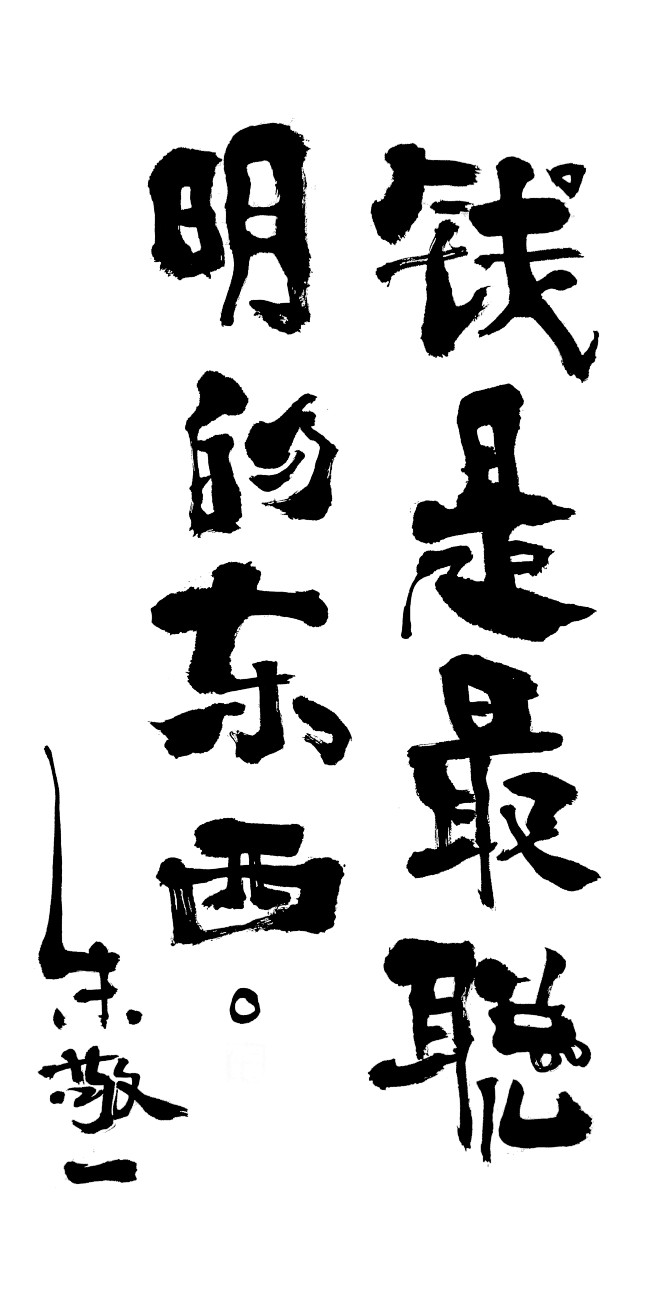 钱是最聪
明的东西。
朱敬一